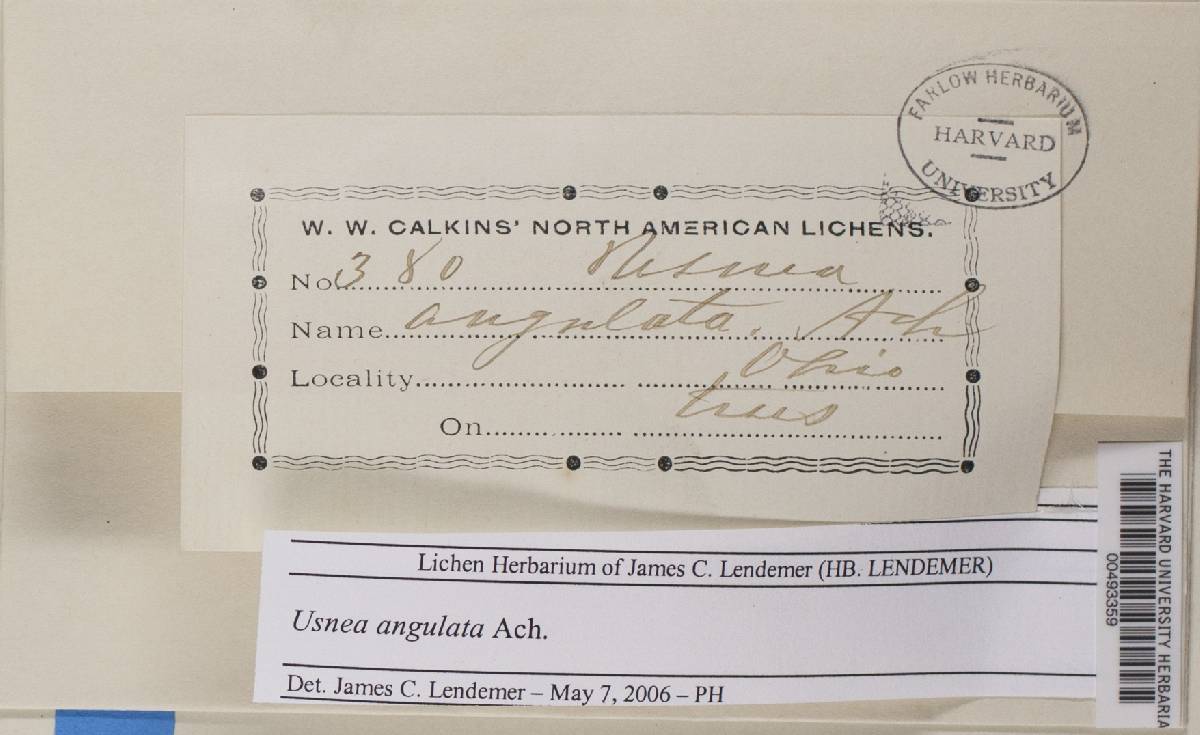 FARLOW HERBARIUM
HARVARD
UNIVERSITY
W. W. CALKINS' NORTH AMERICAN LICHENS.
No. 380 Usnea
Name angulata. Ach
Locality Ohio
On trees
Lichen Herbarium of James C. Lendemer (HB. LENDEMER)
Usnea angulata Ach.
Det. James C. Lendemer – May 7, 2006 – PH
THE HARVARD UNIVERSITY HERBARIA
00493359